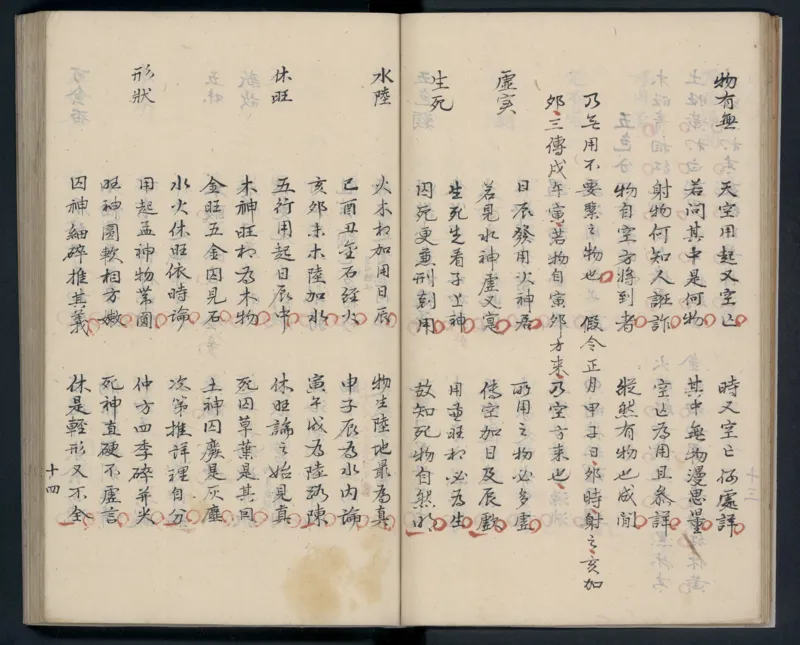 物有無
天空用起又空亡 時又空亡何處詳
若問其中是何物 其中無物漫思量
射物何知人誑詐 空亡為用且恭詳
物自空方將到者 縱然有物也成閒
乃無用不要緊之物也 假令正月甲子日夘時射之亥加
夘三傳戌午寅若物自寅夘方來乃空方來也
虛实
日辰發用火神居 所用之物必多虛
若見水神虛又實 傳空加日及辰歟
生死
生死先看子上神 用兼旺相必為生
囚死更兼刑剋用 故知死物自然明
水陸
火木相加用日辰 物生陸地最為真
巳酉丑金石經火 申子辰為水內論
亥夘未木陸加水 寅午戌為陸路陳
休旺
五行用起日辰中 休旺論之始見真
木神旺相為木物 死囚草葉是其同
金旺五金囚見石 土神囚廢是灰塵
水火休旺依時論 次第推詳理自分
形狀
用起孟神物葉圓 仲方四季碎并尖
旺神圓軟相方嫩 死神直硬不虛言
囚神細碎推其義 休是輕形又不全
十四